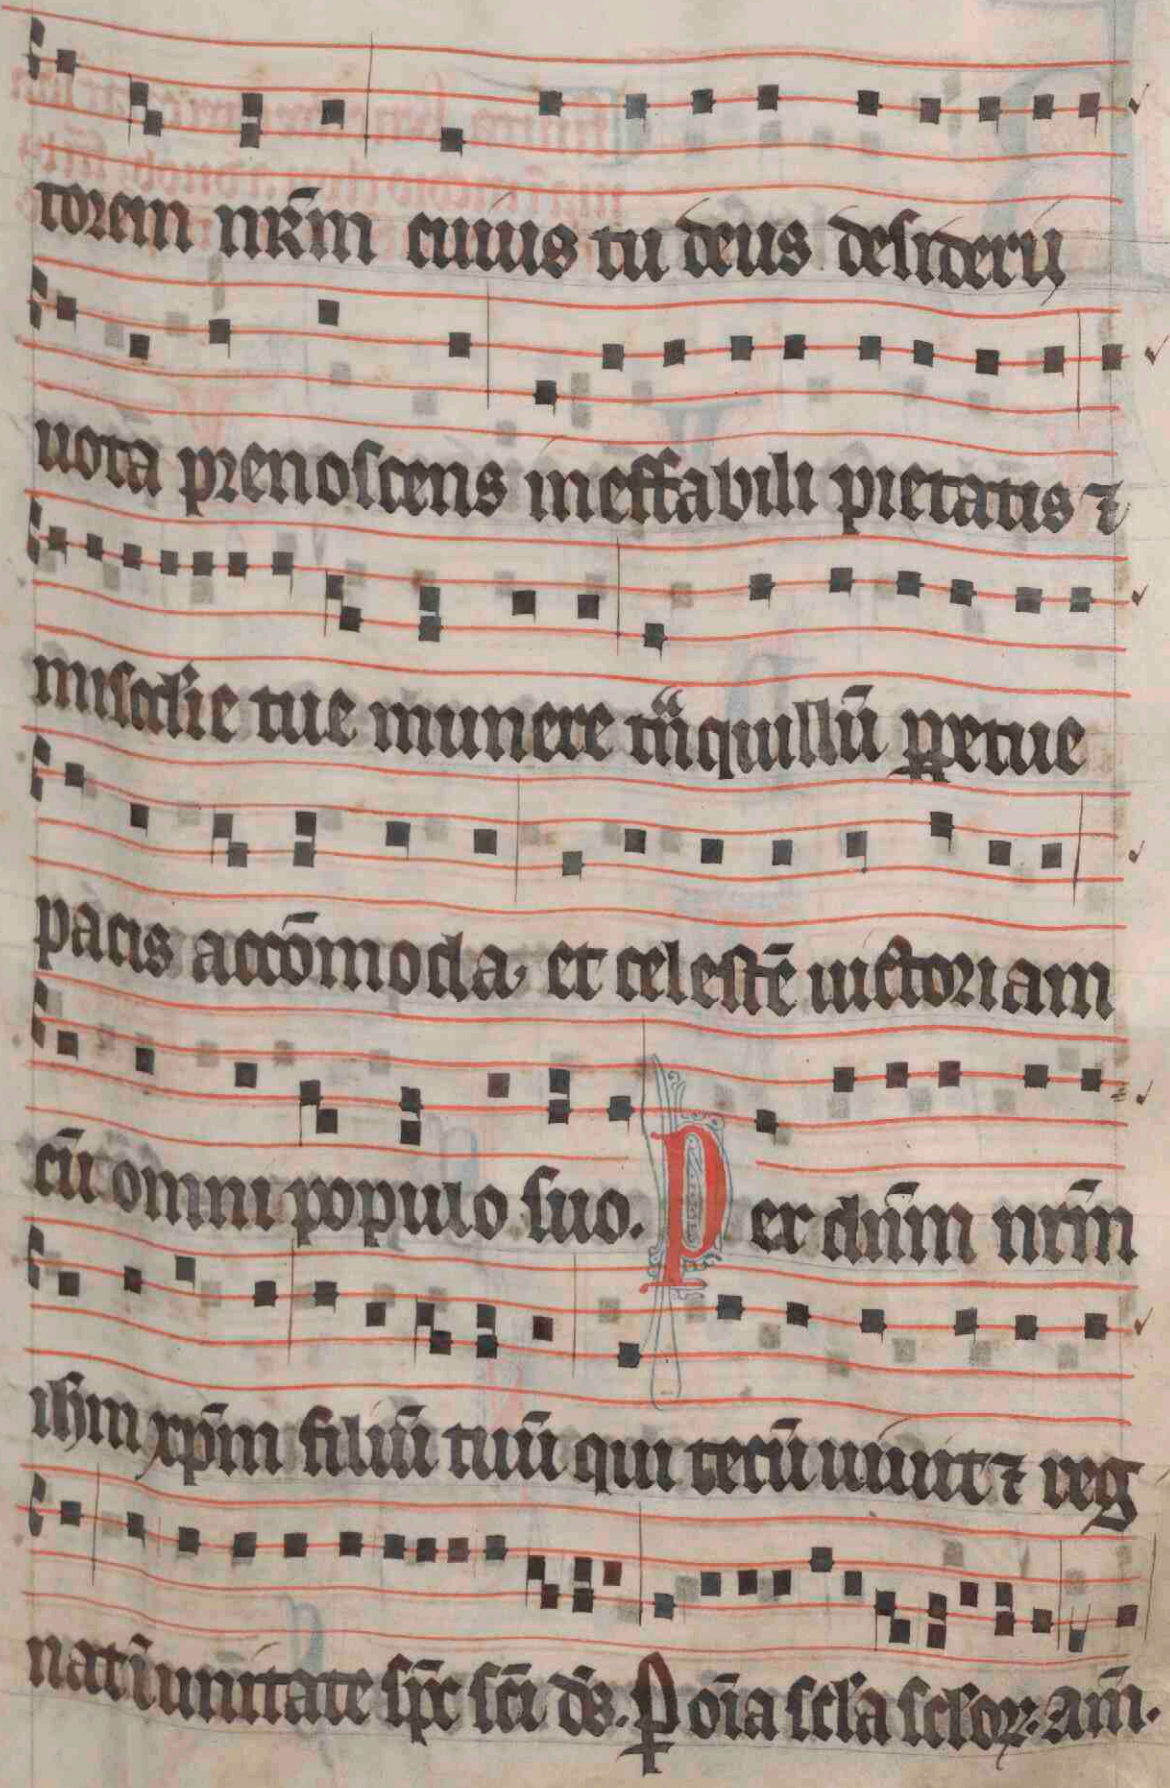 torem nr̄m cuius tu deus desiderij
uota prenoscens ineffabili pietatis ⁊
mis̄cdie tue munere tͣnquillū ꝑpetue
pacis accōmoda, et celestē uictoriam
cū omni populo suo. Per dn̄m nr̄m
ihm xp̄m filiū tuū qui tecū uiuit ⁊ reg
nat ī unitate sp̄c sc̄i ds̄. Ꝑ oīa scl̄a scl̄oꝝ. am̄.